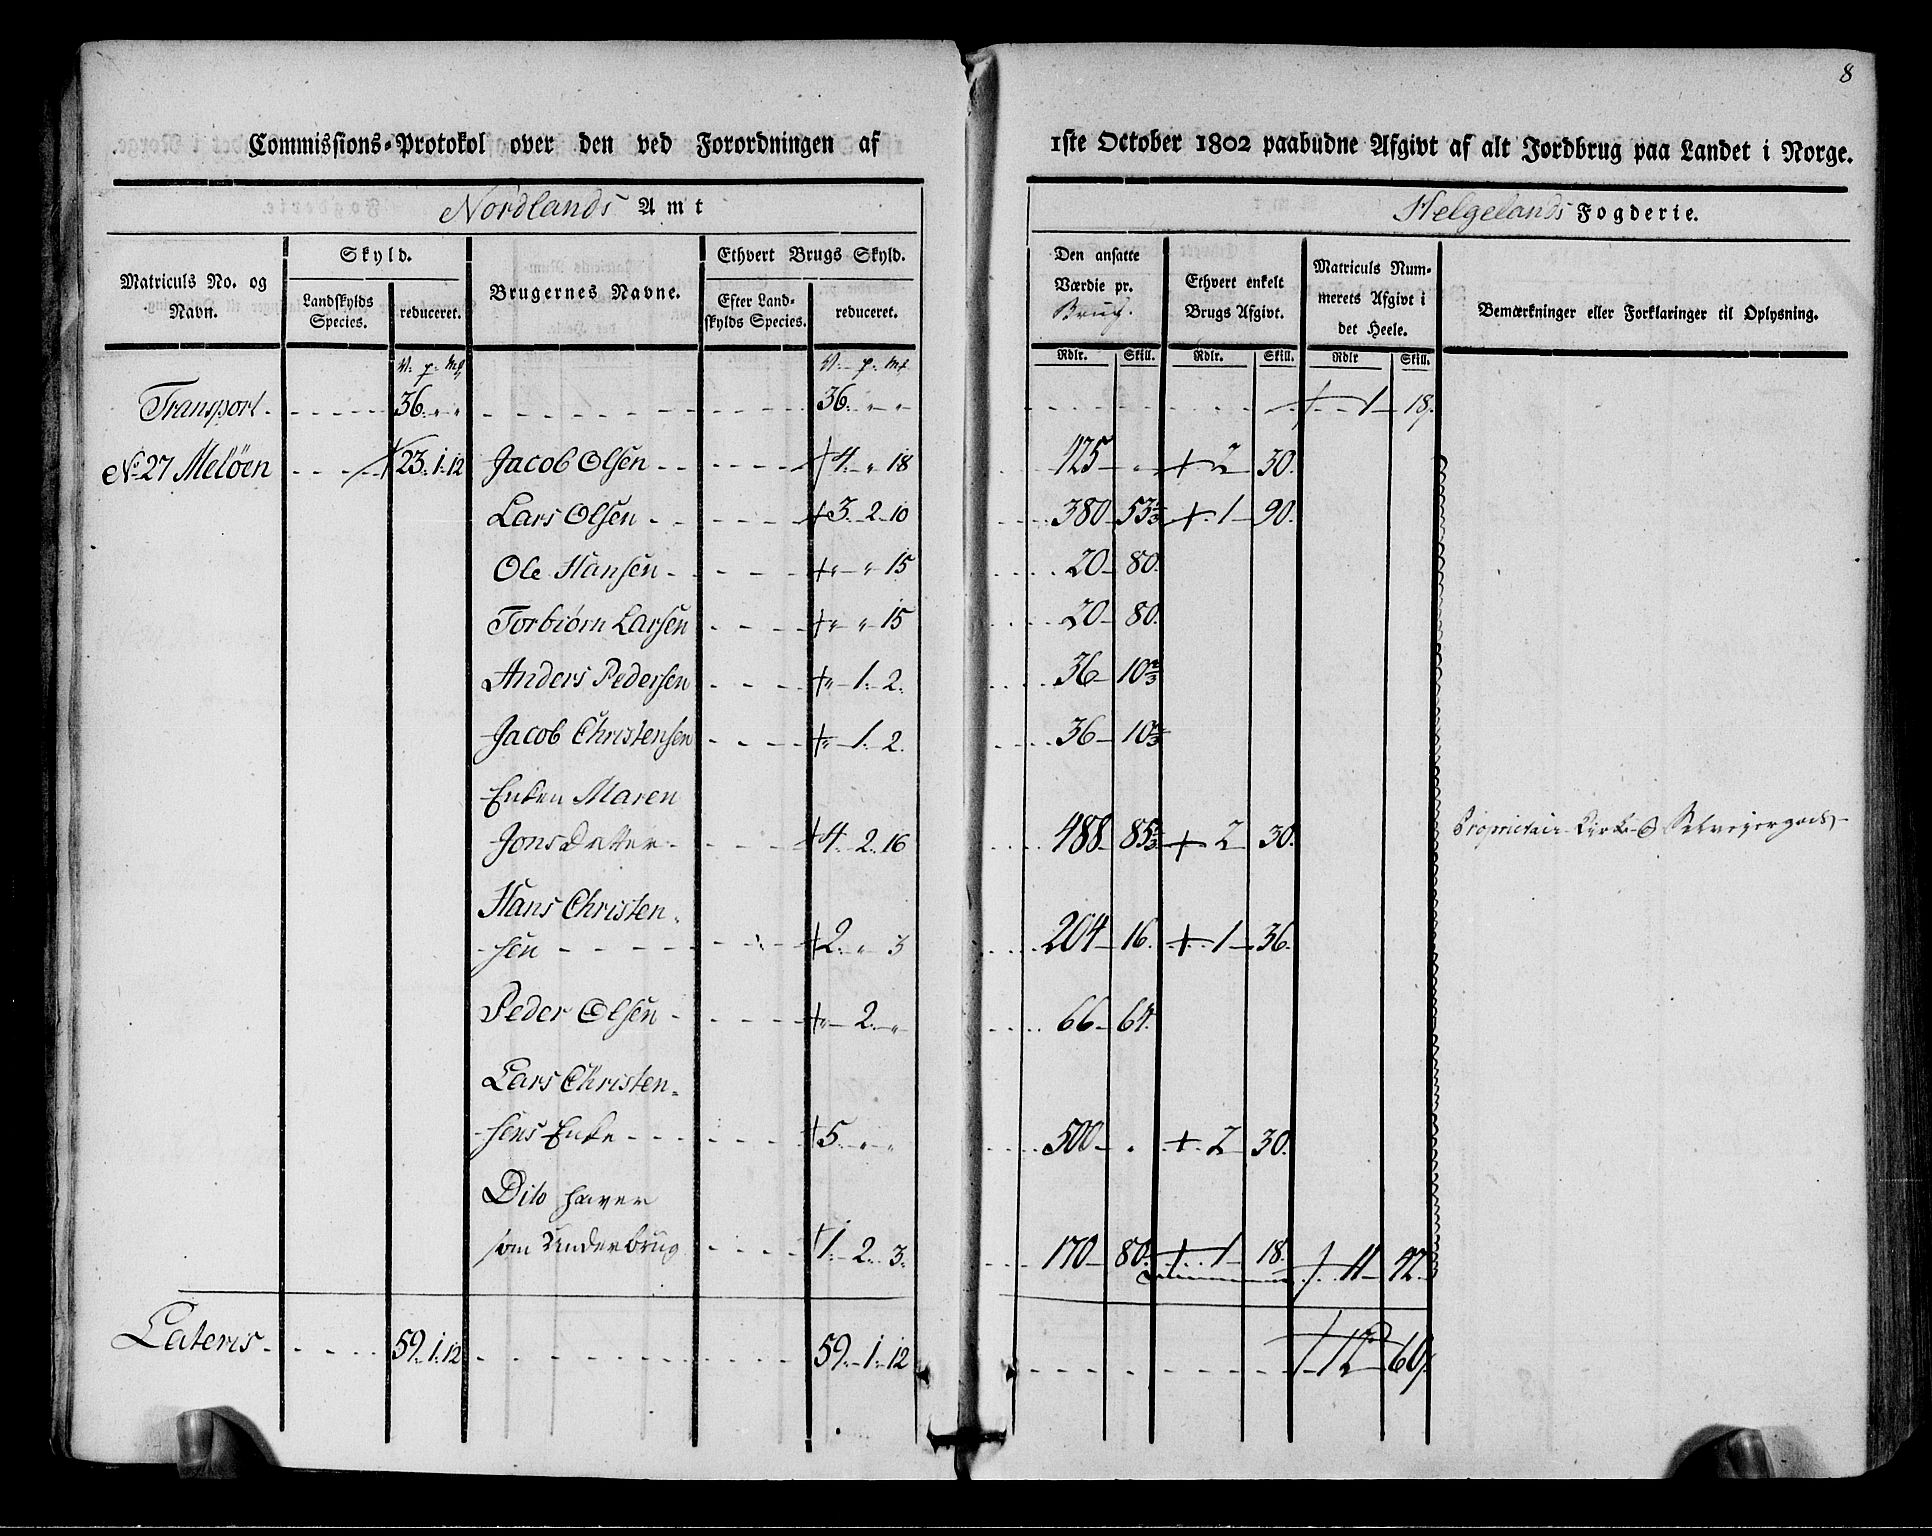 8
Commissions-Protokol over den ved Forordningen af 1ste October 1802 paabudne Afgivt af alt Jordbrug paa Landet i Norge.
Nordlands Amt
Helgelands Fogderie.
Matriculs No. og Navn.
Skyld.
Landskylds Species.
reduceret.
Brugernes Navne.
Ethvert Brugs Skyld.
Efter Landskylds Species.
reduceret.
Den ansatte Værdie pr. Brug.
Ethvert enkelt Brugs Afgivt.
Matriculs Nummerets Afgivt i det Heele.
Bemærkninger eller Forklaringer til Oplysning.
V. p. Mk V. p. Mk Rdlr. Skill. Rdlr. Skill. Rdlr Skill.
Transport 36 „ „ 36 „ „ 1 18
No 27 Meløen 23 1 12 Jacob Olsen 4 „ 18 425 „ 2 30
Lars Olsen 3 2 10 380 53 1/3 1 90
Ole Hansen „ „ 15 20 80
Torbiørn Larsen „ „ 15 20 80
Anders Pedersen „ 1 2 36 10 2/3
Jacob Christensen „ 1 2 36 10 2/3
Enken Maren
Jonsdatter 4 2 16 488 85 1/3 2 30 Proprietair Kirke & Selveiergods
Hans Christen-
sen 2 „ 3 204 16 1 36
Peder Olsen „ 2 „ 66 64
Lars Christen-
sens Enke 5 „ „ 500 „ 2 30
Dito haver
som Underbrug 1 2 3 170 80 1 18 11 42
Lateris 59 1 12 59 1 12 12 60